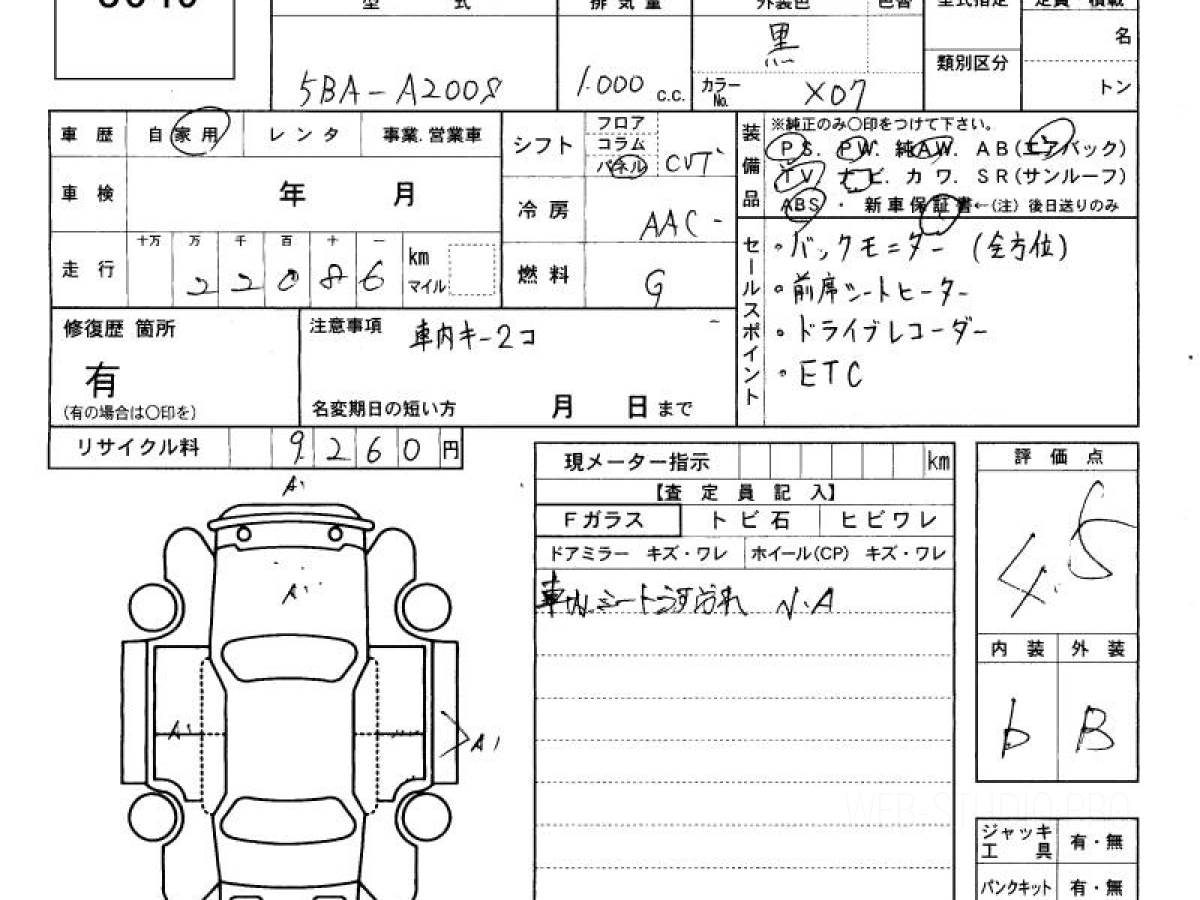 型 式
排 気 量
外装色
色替
型式指定
定員 積載
黒
名
類別区分
5BA-A200S
1.000 c.c.
カラーNo. X07
トン
車 歴 自 家 用 レ ン タ 事業.営業車
シフト フロア コラム パネル CVT
装備品
※純正のみ〇印をつけて下さい。
PS. PW. 純AW. AB(エアバック)
TV. ナビ. カワ. SR(サンルーフ)
ABS ・ 新車保証書←(注) 後日送りのみ
車 検 年 月
冷 房 AAC
走 行 十万 万 千 百 十 一 km マイル
2 2 0 8 6
燃 料 G
セールスポイント
・バックモニター (全方位)
・前席シートヒーター
・ドライブレコーダー
・ETC
修復歴 箇所
有
(有の場合は〇印を)
注意事項 車内キー2コ
名変期日の短い方 月 日 まで
リサイクル料 9.260 円
現メーター指示 km
【査 定 員 記 入】
Fガラス ト ビ 石 ヒ ビ ワ レ
ドアミラー キズ・ワレ ホイール(CP) キズ・ワレ
車内シートうす汚れ
評 価 点
4.5
内 装 外 装
b B
A1
A1
A1
A1
ジャッキ 工 具 有・無
パンクキット 有・無
WEB STUDIO PRO